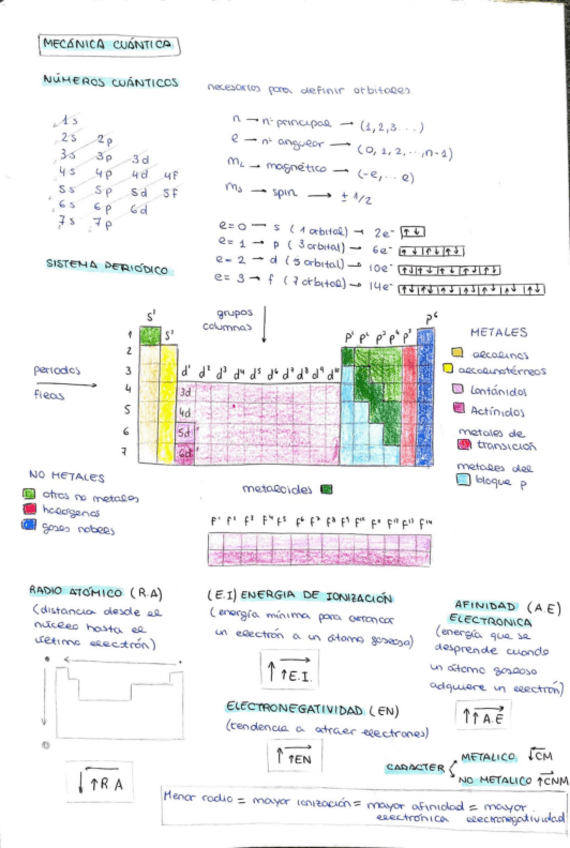 MECÁNICA CUÁNTICA
NÚMEROS CUÁNTICOS
necesarios para definir orbitales
1s
2s 2p
3s 3p 3d
4s 4p 4d 4f
5s 5p 5d 5f
6s 6p 6d
7s 7p
n → nº principal → (1,2,3...)
l → nº angular → (0,1,2,...,n-1)
mL → magnético → (-l,... l)
ms → spin → ± 1/2
l=0 → s (1 orbital) → 2e⁻ ↑↓
l=1 → p (3 orbital) → 6e⁻ ↑↓ ↑↓ ↑↓
l=2 → d (5 orbital) → 10e⁻ ↑↓ ↑↓ ↑↓ ↑↓ ↑↓
l=3 → f (7 orbital) → 14e⁻ ↑↓ ↑↓ ↑↓ ↑↓ ↑↓ ↑↓ ↑↓
SISTEMA PERIÓDICO
grupos
columnas
periodos
filas
s¹
p⁶
1
2
3
4
5
6
7
d¹ d² d³ d⁴ d⁵ d⁶ d⁷ d⁸ d⁹ d¹⁰
3d
4d
5d
6d
METALES
alcalinos
alcalinotérreos
Lantánidos
Actínidos
metales de
transición
metales del
bloque p
NO METALES
otros no metales
halógenos
gases nobles
metaloides
RADIO ATÓMICO (R.A)
(distancia desde el
núcleo hasta el
último electrón)
↓ ↑R A
(E.I) ENERGIA DE IONIZACIÓN
(energía mínima para arrancar
un electrón a un átomo gaseoso)
↑ ↑E.I.
ELECTRONEGATIVIDAD (EN)
(tendencia a atraer electrones)
↑ ↑EN
AFINIDAD (A.E)
ELECTRONICA
(energía que se
desprende cuando
un átomo gaseoso
adquiere un electrón)
↑↑A.E
CARACTER
METALICO ↓CM
NO METALICO ↑CNM
Menor radio = mayor ionización = mayor afinidad = mayor
electrónica electronegatividad